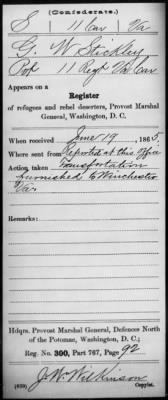 (Confederate.)
S 11 Cav Va
G. W Stickley
Pvt 11 Regt Va Cav
Appears on a
Register
of refugees and rebel deserters, Provost Marshal
General, Washington, D. C.
When received June 19, 1865.
Where sent from Reported at this Office
Action taken Transportation
furnished to Winchester
Va.
Remarks:
Hdqrs. Provost Marshal General, Defences North
of the Potomac, Washington, D. C.;
Reg. No. 390, Part 767, Page 92
J. W. Wilkinson
(639) Copyist.